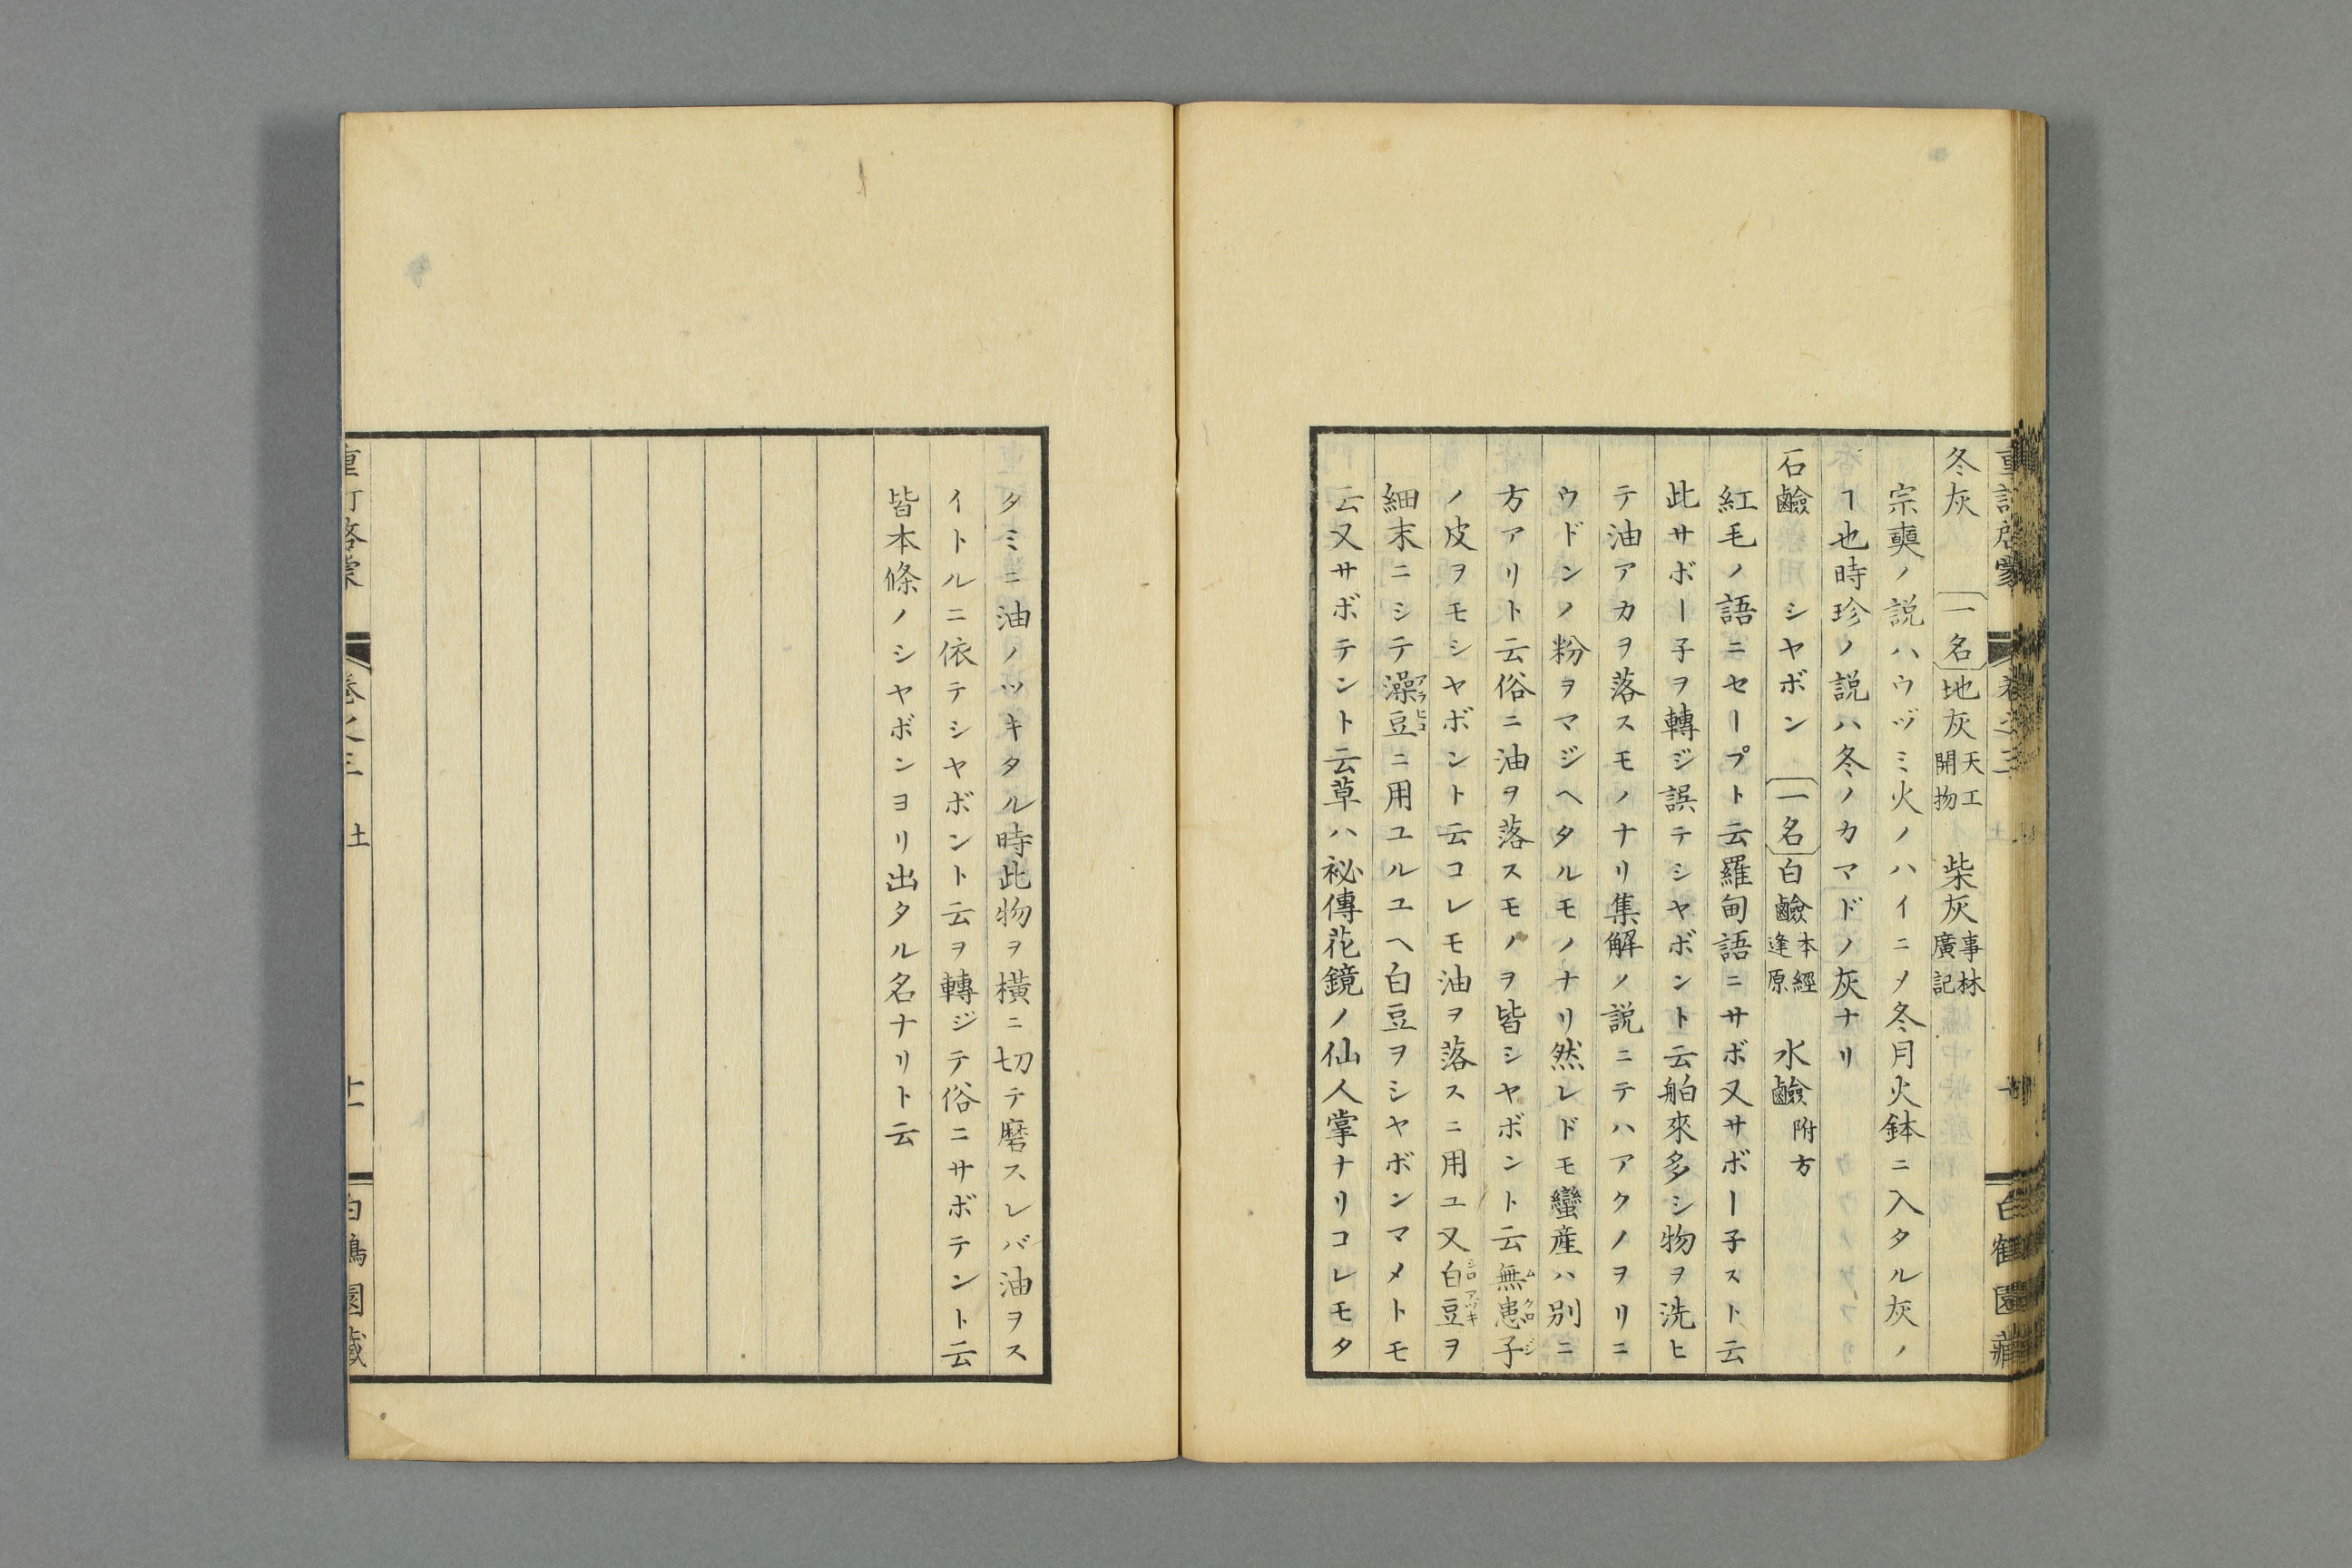 冬灰　〔一名〕地灰天工開物　柴灰事林廣記
宗奭ノ説ハウヅミ火ノハイニメ冬月火鉢ニ入タル灰ノ
ヿ也時珍ノ説ハ冬ノカマドノ灰ナリ
石鹼　シヤボン　〔一名〕白鹼本經逢原　水鹼附方
紅毛ノ語ニセープト云羅甸語ニサボ又サボー子スト云
此サボー子ヲ轉ジ誤テシヤボント云舶來多シ物ヲ洗ヒ
テ油アカヲ落スモノナリ集解ノ説ニテハアクノヲリニ
ウドンノ粉ヲマジヘタルモノナリ然レドモ蠻産ハ別ニ
方アリト云俗ニ油ヲ落スモノヲ皆シヤボント云無患子ムクロジ
ノ皮ヲモシヤボント云コレモ油ヲ落スニ用ユ又白豆シロアツキヲ
細末ニシテ澡豆ニ用ユルユヘ白豆ヲシヤボンマメトモ
云又サボテント云草ハ祕傳花鏡ノ仙人掌ナリコレモタ
タミニ油ノツキタル時此物ヲ横ニ切テ磨スレバ油ヲス
イトルニ依テシヤボント云ヲ轉ジテ俗ニサボテント云
皆本條ノシヤボンヨリ出タル名ナリト云
卷之三　土